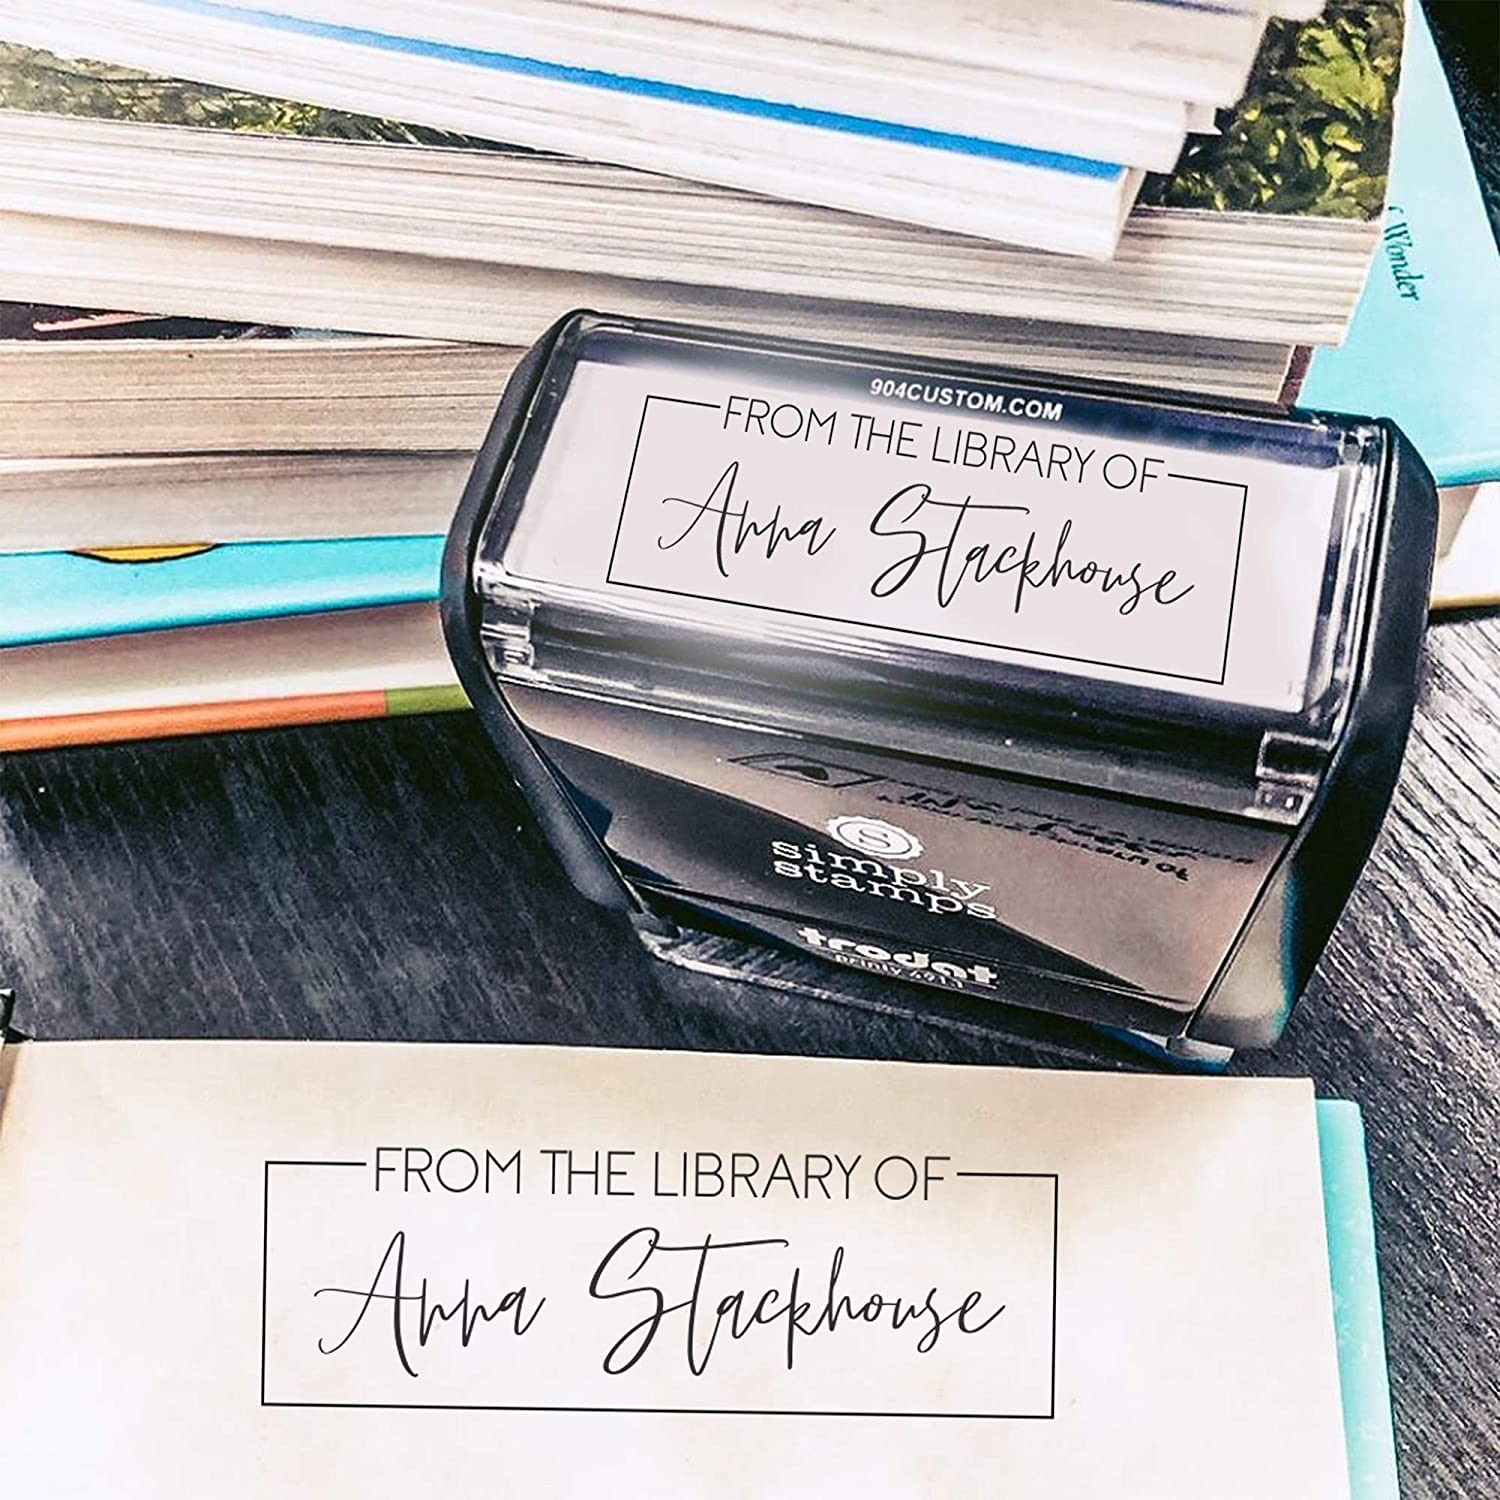 f Wonder
904CUSTOM.COM
FROM THE LIBRARY OF
Anna Stackhouse
S
simply
stamps
trodat
printy 4913
FROM THE LIBRARY OF
Anna Stackhouse